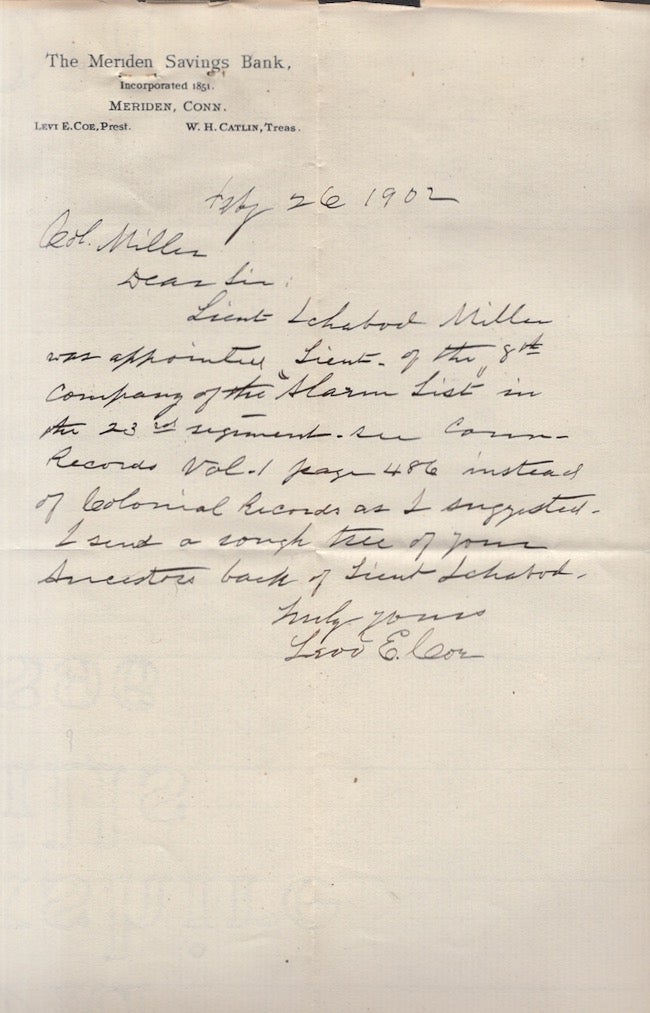 The Meriden Savings Bank,
Incorporated 1851.
MERIDEN, CONN.
LEVI E. COE, Prest. W. H. CATLIN, Treas.
Feby 26 1902
Col. Miller
Dear Sir:
Lieut Ichabod Miller
was appointed Lieut. of the 8th
Company of the "Alarm List" in
the 23rd regiment. see Conn-
Records Vol. 1 page 486 instead
of Colonial Records as I suggested.
I send a rough tree of your
Ancestors back of Lieut Ichabod.
Truly yours
Levi E. Coe